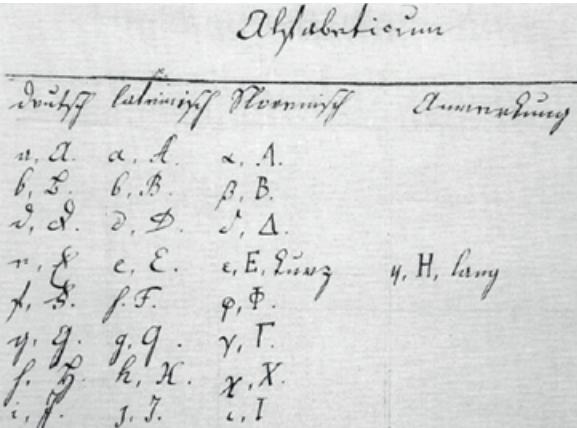 Alfabeticum
deutsch lateinisch Slovenisch Anmerkung
a, A. a, A. α, Α.
b, B. b, B. β, Β.
d, D. d, D. δ, Δ.
e, E. e, E. ε, Ε, kurz η, Η, lang
f, F. f. F. φ, Φ.
g, G. g, G. γ, Γ.
h, H. h, H. χ, Χ.
i, J. j. J. ι, Ι